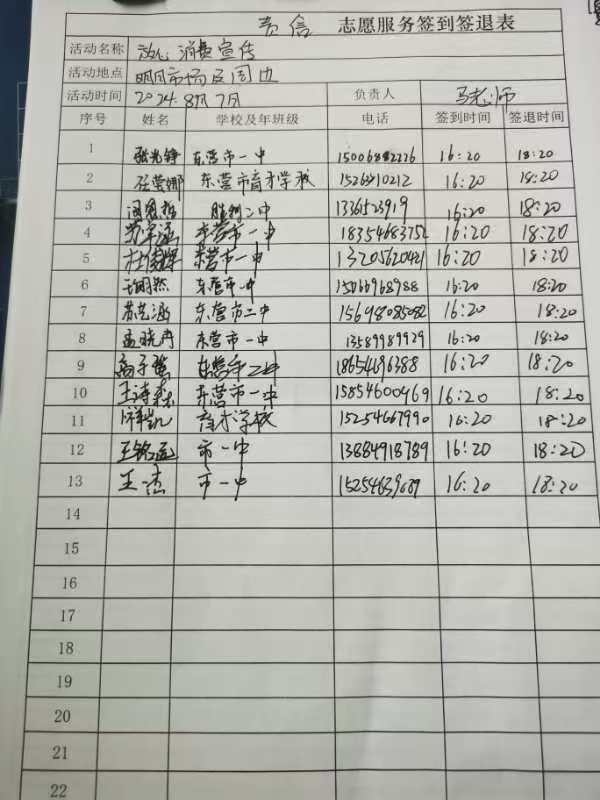 责信 志愿服务签到签退表
活动名称 放心消费宣传
活动地点 明月市场及周边
活动时间 2024.8月7月 负责人 马老师
序号 姓名 学校及年班级 电话 签到时间 签退时间
1 东营市一中 15006882226 16:20 18:20
2 任莹娜 东营市育才学校 16:20 18:20
3 胜利二中 13361523919 16:20 18:20
4 东营市一中 18354683752 16:20 18:20
5 东营市一中 16:20 18:20
6 东营市一中 16:20 18:20
7 苏艺涵 东营市二中 16:20 18:20
8 孟晓冉 东营市一中 13589989929 16:20 18:20
9 东营市二中 18654696388 16:20 18:20
10 王诗森 东营市一中 15854600469 16:20 18:20
11 育才学校 15254667990 16:20 18:20
12 王铭 市一中 13884918789 16:20 18:20
13 王一杰 市一中 16:20 18:20
14
15
16
17
18
19
20
21
22